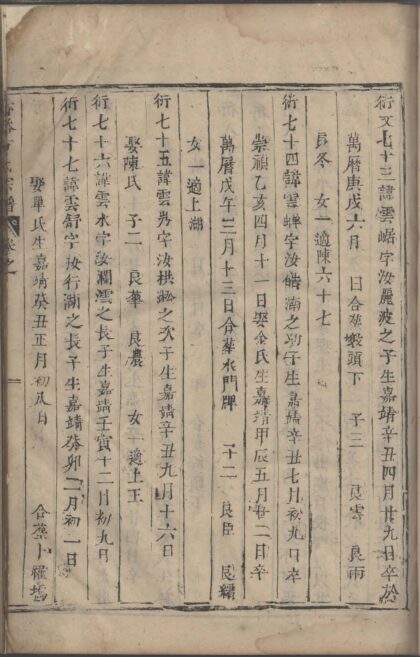 衍文七十三諱雲崌字汝麗波之子生嘉靖辛丑四月廿九日卒於
萬曆庚戌六月 日合葬塅頭下 子三 良雩 良雨
良冬 女一適陳六十七
衍七十四諱雲蟬字汝皓 之幼子生嘉靖辛丑七月初九日卒
崇禎乙亥四月十一日娶金氏生嘉靖甲辰五月廿二日卒
萬曆戊午三月十三日合葬水門牌 子二 良臣 良
女一適上湖
衍七十五諱雲 字汝拱 之次子生嘉靖辛丑九月十六日
娶陳氏 子二 良華 良農 女一適上王
衍七十六諱雲水字汝瀾澐之長子生嘉靖壬寅十二月初九日
衍七十七諱雲舒字汝行湖之長子生嘉靖癸卯二月初一日
娶單氏生嘉靖癸丑正月初八日 合葬卜
宗譜 卷之